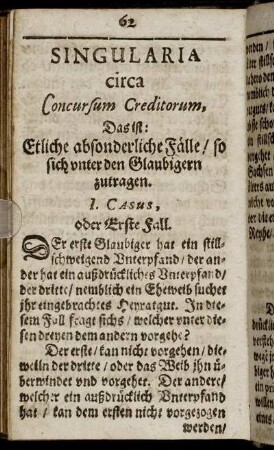 62
SINGULARIA
circa
Concursum Creditorum,
Das ist:
Etliche absonderliche Fälle/ so
sich vnter den Glaubigern
zutragen.
I. CASUS,
oder Erste Fall.
DEr erste Glaubiger hat ein still-
schweigend Vnterpfand/ der an-
der hat ein außdrückliches Vnterpfand/
der dritte/ nemblich ein Eheweib suchet
jhr eingebrachtes Heyratgut. In die-
sem Fall fragt sichs/ welcher vnter die-
sen dreyen dem andern vorgehe?
Der erste/ kan nicht vorgehen/ die-
weiln der dritte/ oder das Weib jhn ü-
berwindet vnd vorgehet. Der andere/
welcher ein außdrücklich Vnterpfand
hat/ kan dem ersten nicht vorgezogen
werden/